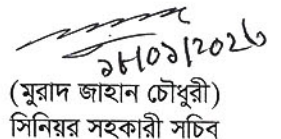 ১৮/০১/২০২৬
(মুরাদ জাহান চৌধুরী)
সিনিয়র সহকারী সচিব